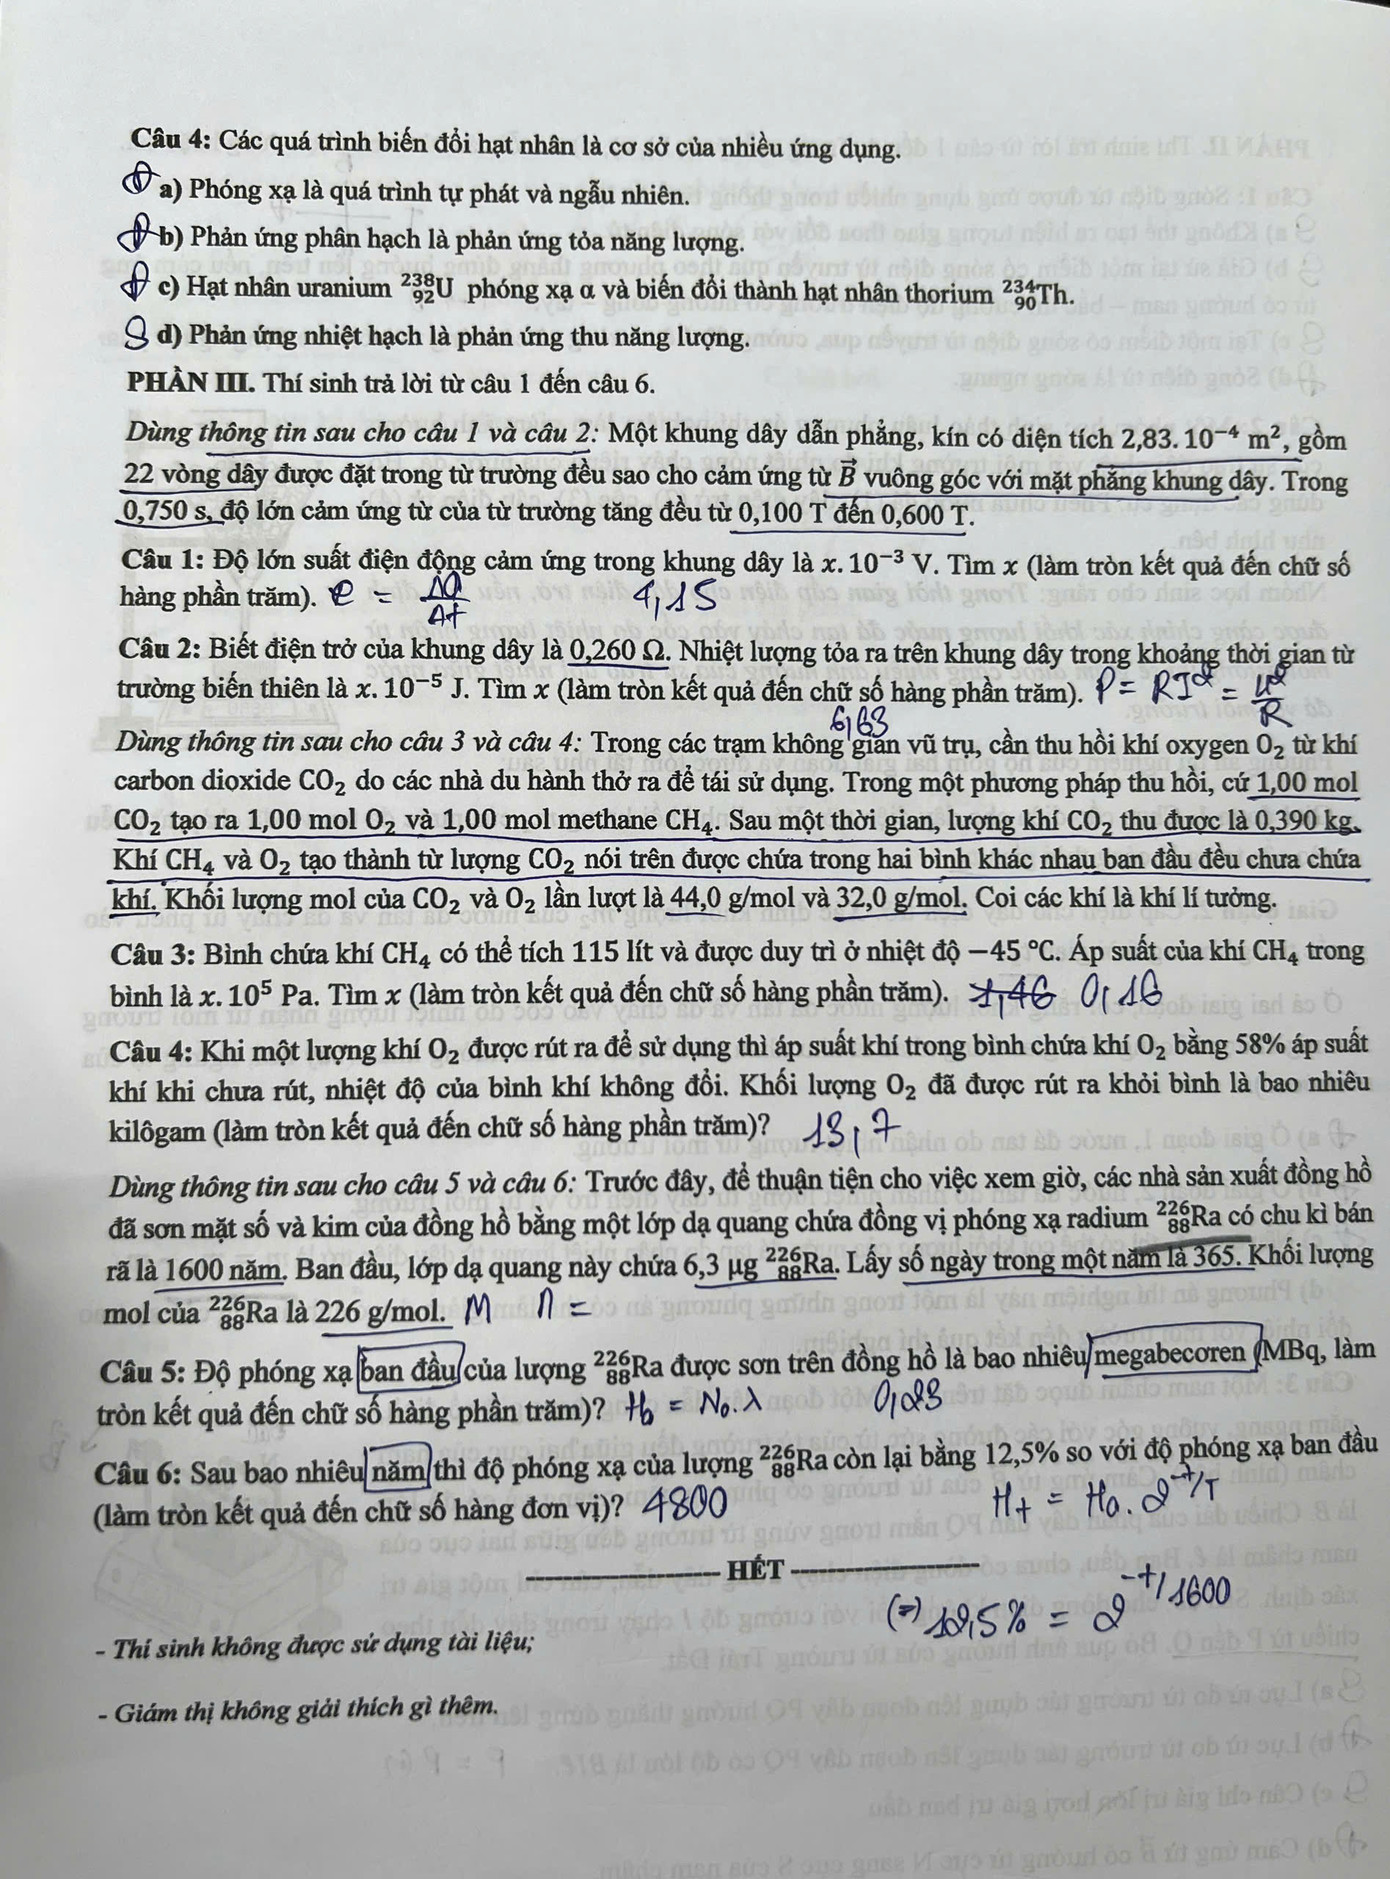 Câu 4: Các quá trình biến đổi hạt nhân là cơ sở của nhiều ứng dụng.
Đ a) Phóng xạ là quá trình tự phát và ngẫu nhiên.
Đ b) Phản ứng phân hạch là phản ứng tỏa năng lượng.
Đ c) Hạt nhân uranium ²³⁸₉₂U phóng xạ α và biến đổi thành hạt nhân thorium ²³⁴₉₀Th.
S d) Phản ứng nhiệt hạch là phản ứng thu năng lượng.
PHẦN III. Thí sinh trả lời từ câu 1 đến câu 6.
Dùng thông tin sau cho câu 1 và câu 2: Một khung dây dẫn phẳng, kín có diện tích 2,83. 10⁻⁴ m², gồm
22 vòng dây được đặt trong từ trường đều sao cho cảm ứng từ B⃗ vuông góc với mặt phẳng khung dây. Trong
0,750 s, độ lớn cảm ứng từ của từ trường tăng đều từ 0,100 T đến 0,600 T.
Câu 1: Độ lớn suất điện động cảm ứng trong khung dây là x. 10⁻³ V. Tìm x (làm tròn kết quả đến chữ số
hàng phần trăm). e = ΔΦ/Δt 4,15
Câu 2: Biết điện trở của khung dây là 0,260 Ω. Nhiệt lượng tỏa ra trên khung dây trong khoảng thời gian từ
trường biến thiên là x. 10⁻⁵ J. Tìm x (làm tròn kết quả đến chữ số hàng phần trăm). P = RI² = U²/R
6,63
Dùng thông tin sau cho câu 3 và câu 4: Trong các trạm không gian vũ trụ, cần thu hồi khí oxygen O₂ từ khí
carbon dioxide CO₂ do các nhà du hành thở ra để tái sử dụng. Trong một phương pháp thu hồi, cứ 1,00 mol
CO₂ tạo ra 1,00 mol O₂ và 1,00 mol methane CH₄. Sau một thời gian, lượng khí CO₂ thu được là 0,390 kg.
Khí CH₄ và O₂ tạo thành từ lượng CO₂ nói trên được chứa trong hai bình khác nhau ban đầu đều chưa chứa
khí. Khối lượng mol của CO₂ và O₂ lần lượt là 44,0 g/mol và 32,0 g/mol. Coi các khí là khí lí tưởng.
Câu 3: Bình chứa khí CH₄ có thể tích 115 lít và được duy trì ở nhiệt độ −45 °C. Áp suất của khí CH₄ trong
bình là x. 10⁵ Pa. Tìm x (làm tròn kết quả đến chữ số hàng phần trăm). 1,46 0,16
Câu 4: Khi một lượng khí O₂ được rút ra để sử dụng thì áp suất khí trong bình chứa khí O₂ bằng 58% áp suất
khí khi chưa rút, nhiệt độ của bình khí không đổi. Khối lượng O₂ đã được rút ra khỏi bình là bao nhiêu
kilôgam (làm tròn kết quả đến chữ số hàng phần trăm)? 13,7
Dùng thông tin sau cho câu 5 và câu 6: Trước đây, để thuận tiện cho việc xem giờ, các nhà sản xuất đồng hồ
đã sơn mặt số và kim của đồng hồ bằng một lớp dạ quang chứa đồng vị phóng xạ radium ²²⁶₈₈Ra có chu kì bán
rã là 1600 năm. Ban đầu, lớp dạ quang này chứa 6,3 μg ²²⁶₈₈Ra. Lấy số ngày trong một năm là 365. Khối lượng
mol của ²²⁶₈₈Ra là 226 g/mol. M n =
Câu 5: Độ phóng xạ ban đầu của lượng ²²⁶₈₈Ra được sơn trên đồng hồ là bao nhiêu megabecơren (MBq, làm
tròn kết quả đến chữ số hàng phần trăm)? H₀ = N₀.λ 0,23
Câu 6: Sau bao nhiêu năm thì độ phóng xạ của lượng ²²⁶₈₈Ra còn lại bằng 12,5% so với độ phóng xạ ban đầu
(làm tròn kết quả đến chữ số hàng đơn vị)? 4800 Hₜ = H₀. 2^-t/T
HẾT
(=) 12,5% = 2^-t/1600
- Thí sinh không được sử dụng tài liệu;
- Giám thị không giải thích gì thêm.